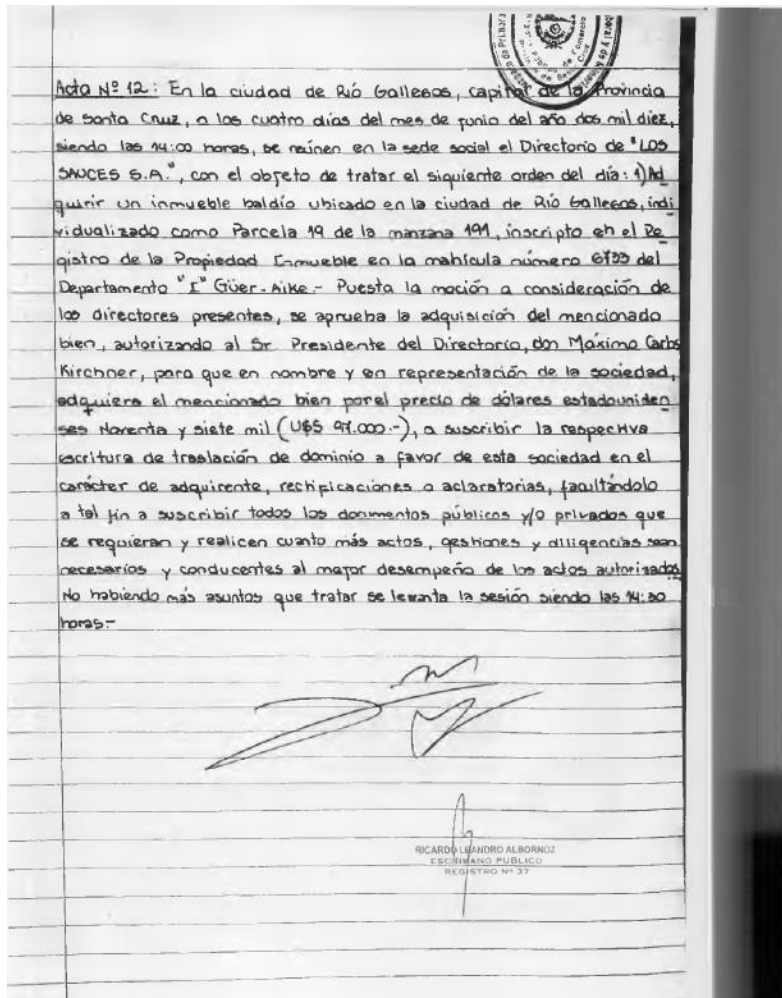 Acta Nº 12: En la ciudad de Rió Gallegos, capital de la Provincia
de Santa Cruz, a los cuatro días del mes de junio del año dos mil diez,
siendo las 14:00 horas, se reúnen en la sede social el Directorio de "LOS
SAUCES S.A.", con el objeto de tratar el siguiente orden del día: 1) Ad
quirir un inmueble baldío ubicado en la ciudad de Rió Gallegos, indi
vidualizado como Parcela 19 de la manzana 191, inscripto en el Re
gistro de la Propiedad Inmueble en la matrícula número 6733 del
Departamento "I" Güer-Aike.- Puesta la moción a consideración de
los directores presentes, se aprueba la adquisición del mencionado
bien, autorizando al Sr. Presidente del Directorio, don Máximo Carlos
Kirchner, para que en nombre y en representación de la sociedad,
adquiera el mencionado bien por el precio de dólares estadouniden
ses Noventa y siete mil (U$S 97.000.-), a suscribir la respectiva
escritura de traslación de dominio a favor de esta sociedad en el
carácter de adquirente, rectificaciones o aclaratorias, facultándolo
a tal fin a suscribir todos los documentos públicos y/o privados que
se requieran y realicen cuanto más actos, gestiones y diligencias sean
necesarios y conducentes al mejor desempeño de los actos autorizados
No habiendo más asuntos que tratar se levanta la sesión siendo las 14:30
horas.-
RICARDO LEANDRO ALBORNOZ
ESCRIBANO PUBLICO
REGISTRO Nº 37